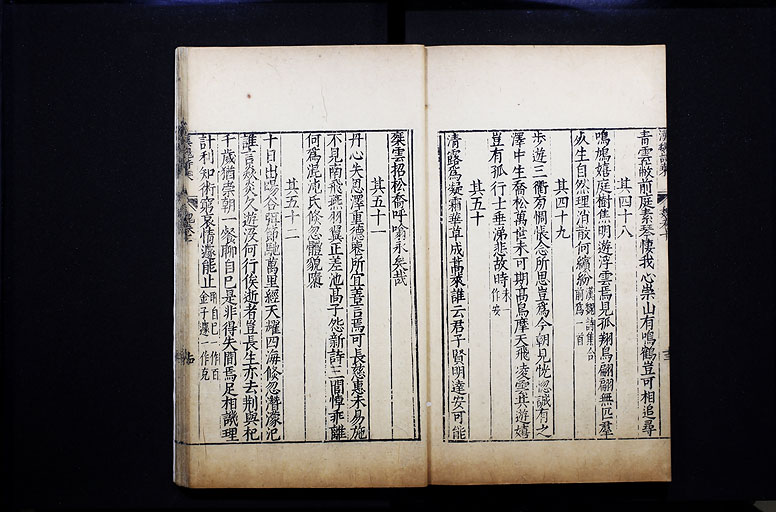 青雲蔽前庭素琴悽我心崇山有鳴鶴豈可相追尋
其四十八
鳴鳩嬉庭樹焦明遊浮雲焉見孤翔鳥翩翩無匹羣
死生自然理消散何繽紛漢魏詩集合前爲一首
其四十九
步遊三衢旁惆悵念所思豈爲今朝見恍惚誠有之
澤中生喬松萬世未可期高鳥摩天飛凌雲共遊嬉
豈有孤行士垂涕悲故時未一作安
其五十
清露爲凝霜華草成蒿萊誰云君子賢明達安可能
乘雲招松喬呼噏永矣哉
其五十一
丹心失恩澤重德喪所宜善言焉可長慈惠未易施
不見南飛燕羽翼正差池高子怨新詩三閭悼乖離
何爲混沌氏倐忽體貌隳
其五十二
十日出暘谷弭節馳萬里經天耀四海倐忽潛濛汜
誰言焱炎久遊沒何行俟逝者豈長生亦去荆與杞
千歲猶崇朝一餐聊自已是非得失間焉足相譏理
計利知術窮哀情遽能止聊自已一作百金子遽一作克